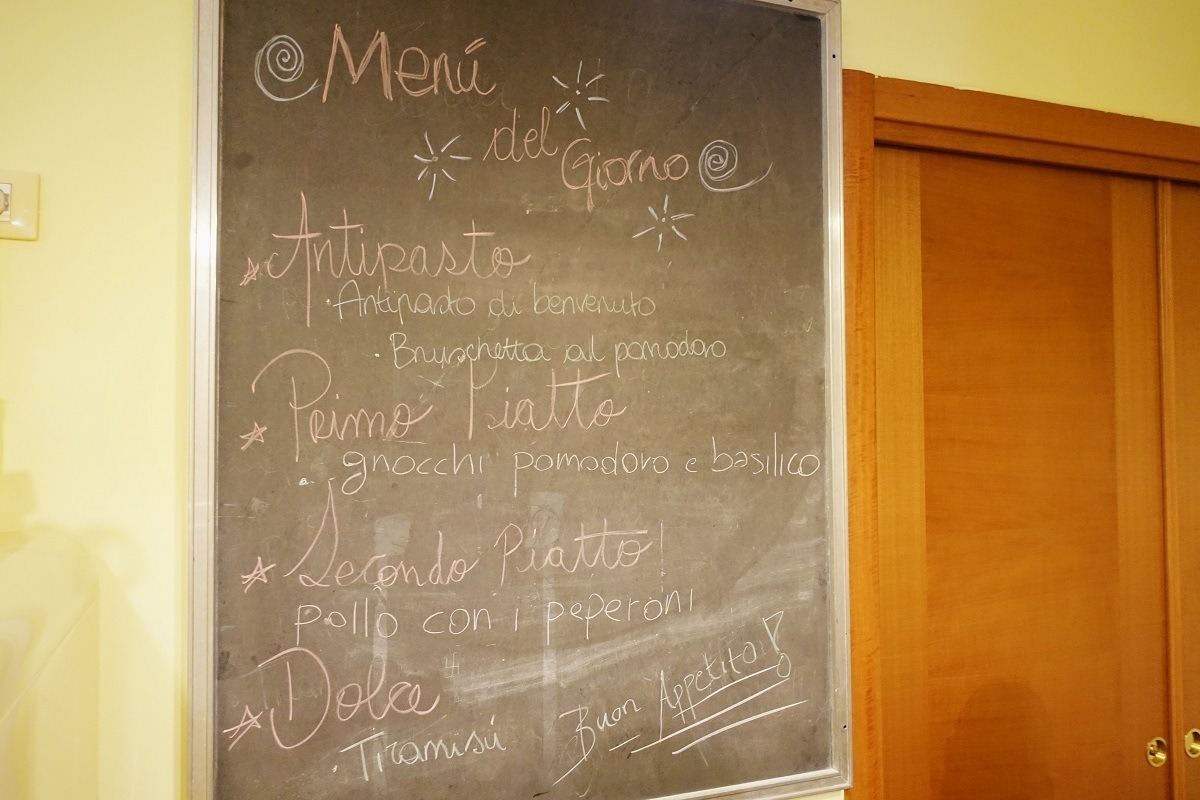 Menú
del
Giorno
Antipasto
Antipasto di benvenuto
Bruschetta al pomodoro
Primo Piatto
gnocchi pomodoro e basilico
Secondo Piatto
pollo con i peperoni
Dolce
Tiramisú
Buon Appetito!